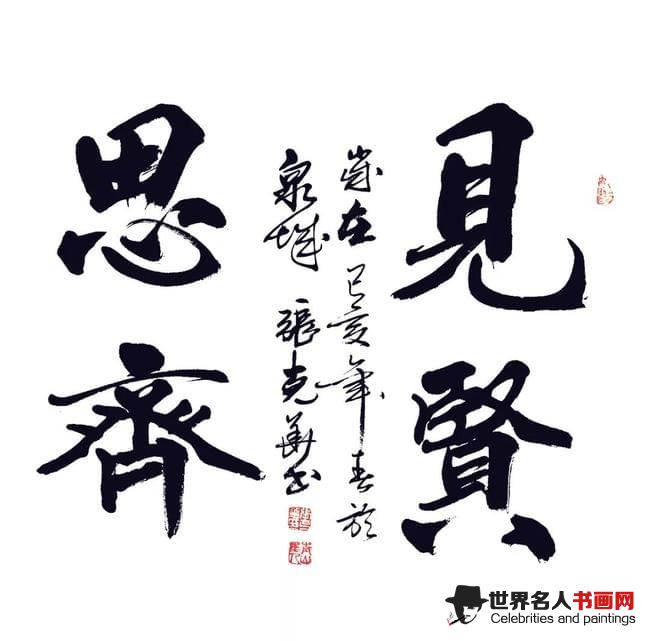 見賢
思齊
歲在己亥年春於
泉城 張克華书
世界名人书画网
Celebrities and paintings